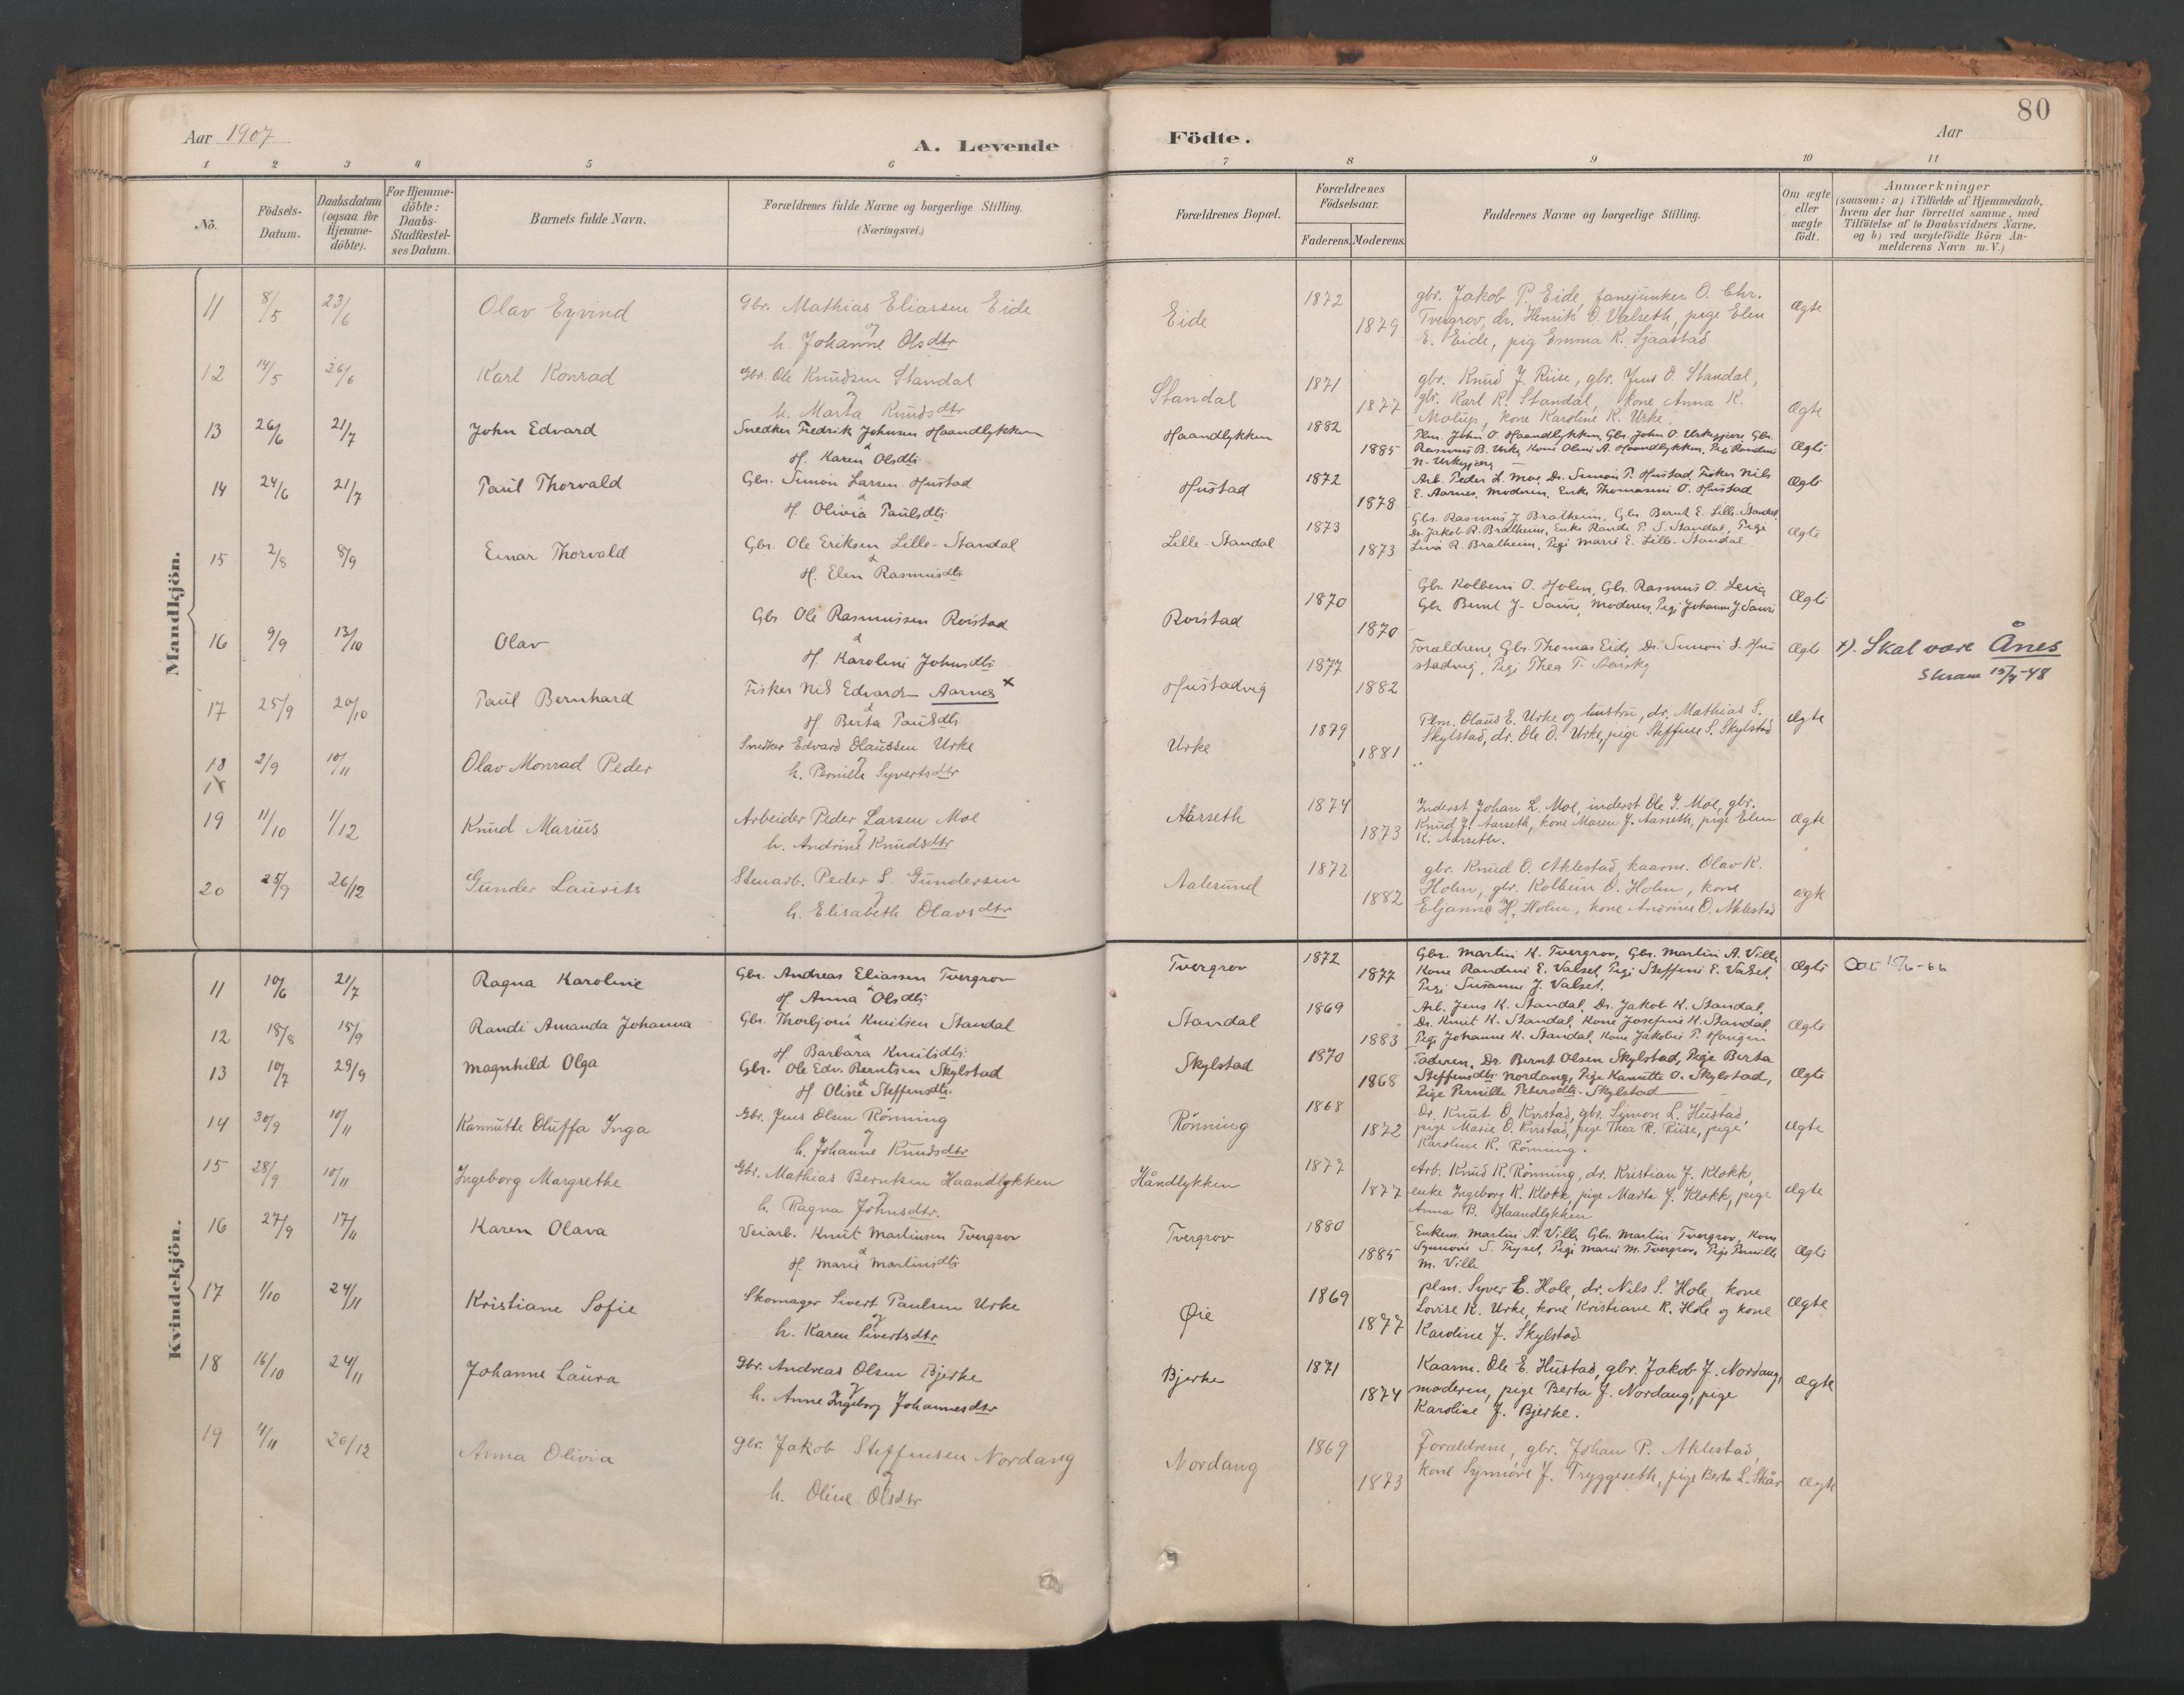 80
Aar 1907
A. Levende Födte.
Aar
1 2 3 4 5 6 7 8 9 10 11
No.
Födsels-Datum.
Daabsdatum (ogsaa for Hjemme-döbte).
For Hjemme-döbte: Daabs-Stadfæstel-ses Datum.
Barnets fulde Navn.
Forældrenes fulde Navne og borgerlige Stilling. (Næringsvei.)
Forældrenes Bopæl.
Forældrenes Födselsaar.
Faderens. Moderens.
Faddernes Navne og borgerlige Stilling.
Om ægte eller uægte födt.
Anmærkninger
(saasom: a) i Tilfælde af Hjemmedaab,
hvem der har forrettet samme, med
Tilföielse af to Daabsvidners Navne.
og b) ved uægtefödte Börn An-
melderens Navn m.V.)
Mandkjön.
11 8/5 23/6 Olav Eyvind Gbr. Mathias Eliassen Eide Eide 1872 gbr. Jakob P. Eide, fanejunker O. Chr. Ægte
og 1879 Tvergrov, dr. Henrik O. Valseth, pige Elen
h. Johanne Olsdtr E. Eide, pig Emma K. Sjaastad
12 14/5 26/6 Karl Konrad Gbr. Ole Knudsen Standal Standal 1871 gbr. Knud J. Riise, gbr. Jens O. Standal,
og 1877 gbr. Karl K. Standal, kone Anna K. Ægte
h. Marta Knudsdtr kone Karoline K. Urke.
13 26/6 21/7 John Edvard Snedker Fredrik Johnsen Haandlykken Haandlykken 1882 Plm. John O. Haandlykken, Gbr. John O. Urkegjære, Gbr.
& H. Karen Olsdtr 1885 Rasmus B. Urke, Kone Oline A. Haandlykken, Ægte
N. Urkegjærg
14 24/6 21/7 Paul Thorvald Gbr. Simon Larsen Hustad Hustad 1872 Arb. Peder L. Moe, Dr. Simon P. Hustad, Fisker Nils Ægte
& H. Olivia Paulsdtr 1878 E. Aarnes, Moderen, Enke Thomasine O. Hustad
15 2/8 8/9 Einar Thorvald Gbr. Ole Eriksen Lille-Standal Lille-Standal 1873 Gbr. Rasmus J Bratheim, Gbr. Bernt E. Lille-Standal,
Dr. Jakob R. Bratheim, Enke Randi P. S. Standal, Pige Ægte
& H. Elen Rasmusdtr 1873 Lina R. Bratheim, Pige Marie E. Lille-Standal
16 9/9 13/10 Olav Gbr Ole Rasmussen Rorstad Rorstad 1870 Gbr Kolbein O. Holm, Gbr. Rasmus O. Ægte
& H. Karoline Johnsdtr 1870 Gbr Bernt J. Moderen, Pige Johanne J
17 25/9 20/10 Paul Bernhard Fisker Nils Edvardsen Aarnes x Hustadvig 1877 Forældrene, Gbr. Thomas Eide, Dr. Simon S. Hus Ægte x). Skal være Ånes
& H. Berta Paulsdtr 1882 stadvig, Pige Thea T. 15/7-48
18 2/9 10/11 Olav Monrad Peder Snedker Edvard Olaussen Urke Urke 1879 Plm. Olaus E. Urke og hustru, dr. Mathias S. Ægte
og h. Pernille Syvertsdtr 1881 Skylstad, dr. Ole O. Urke, pige Steffine S. Skylstad
19 11/10 1/12 Knud Marius Arbeider Peder Larsen Moe Aarseth 1874 Inderst Johan L. Moe, inderst Ole J. Moe, gbr.
og h. Andrine Knudsdtr 1873 Knud J. Aarseth, kone Maren J. Aarseth, pige Elen Ægte
K. Aarseth.
20 25/9 26/12 Gunder Laurits Stenarb. Peder S. Gundersen Aalesund 1872 gbr. Knud O. Aklestad, kaarm. Olav K.
og 1882 Holm, gbr. Kolbein O. Holm, kone ægte
h. Elisabeth Olavsdtr Eljanne H. Holm, kone Andrine O. Aklestad
Kvindekjön.
11 10/6 21/7 Ragna Karoline Gbr. Andreas Eliassen Tvergrov Tvergrov 1872 Gbr. Martin K. Tvergrov, Gbr. Martin A. Ville,
& H. Anna Olsdtr 1877 Kone Randine E. Valset, Pige Steffine E. Valset, Ægte 15/6-66
Pige Susanne J. Valset.
12 18/8 15/9 Randi Amanda Johanna Gbr. Thorbjørn Knutsen Standal Standal 1869 Arb. Jens K. Standal, Dr. Jakob K. Standal,
& H. Barbara Knutsdtr 1883 Dr. Knut K. Standal, Kone Josefine K. Standal, Ægte
Pige Johanne K. Standal, Kone Jakobine P. Haugen
13 10/7 29/9 Magnhild Olga Gbr. Ole Edv. Berntsen Skylstad Skylstad 1870 Faderen, Dr. Bernt Olsen Skylstad, Pige Berta
& H Oline Steffensdtr. 1868 Steffensdtr Nordang, Pige Kanutte O. Skylstad, Ægte
Pige Pernille Petersdtr. Skylstad
14 30/9 10/11 Kannutte Oluffa Inga Gbr. Jens Olsen Rönning Rönning 1868 Dr. Knut O. gbr. Simon L. Hustad
og h. Johanne Knudsdtr 1872 pige Marie O. pige Thea R. Riise, pige Ægte
Karoline K. Rönning.
15 28/9 10/11 Ingeborg Margrethe Gbr. Mathias Berntsen Haandlykken Håndlykken 1877 Arb. Knud R. Rönning, dr. Kristian J. Klokk,
og h. Ragna Johnsdtr. 1877 enke Ingeborg K. Klokk, pige Marta J. Klokk, pige Ægte
Anna B. Haandlykken
16 27/9 17/11 Karen Olava Veiarb. Knut Martinsen Tvergrov Tvergrov 1880 Enkem. Martin A. Ville, Gbr. Martin Tvergrov, Kone
& H. Marie Martinsdtr 1885 Synnøve S. Pige Marie M. Tvergrov, Pige Pernille Ægte
M. Ville
17 1/10 24/11 Kristiane Sofie Skomager Sivert Paulsen Urke Øie 1869 plm. Syver E. Hole, dr. Nils S. Hole, kone
og h. Karen Sivertsdtr 1877 Lovise K. Urke, kone Kristiane K. Hole og kone Ægte
Karoline J. Skylstad
18 16/10 24/11 Johanne Laura Gbr. Andreas Olsen Bjerke Bjerke 1871 Kaarm. Ole E. Hustad, gbr. Jakob J. Nordang,
og h. Anne Ingeborg Johannesdtr 1874 moderen, pige Berta J. Nordang, pige ægte
Karoline J. Bjerke.
19 4/11 26/12 Anna Olivia gbr. Jakob Steffensen Nordang Nordang 1869 Forældrene, gbr. Johan P. Aklestad,
og h. Oline Olsdtr 1873 kone Synnöve J. Tryggeseth, pige Berta L. Skår ægte